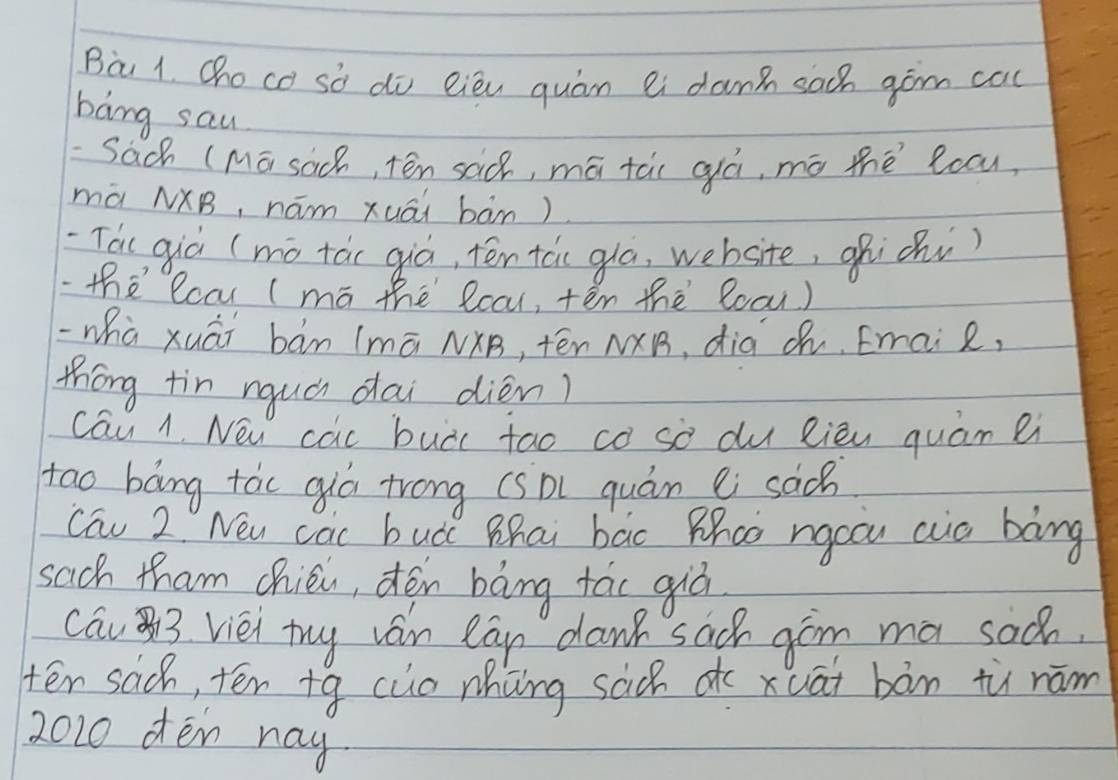 Bài 1. Cho cơ sở dữ liệu quản lí danh sách gồm các
bảng sau
- Sách (Mã sách, tên sách, mã tác giả, mã thể loại,
mã NXB, năm xuất bản)
- Tác giả (mã tác giả, tên tác giả, website, ghi chú)
- thể loại (mã thể loại, tên thể loại)
- nhà xuất bản (mã NXB, tên NXB, địa chỉ, Email,
thông tin người đại diện)
Câu 1. Nêu các bước tạo cơ sở dữ liệu quản lí
tạo bảng tác giả trong CSDL quản lí sách.
Câu 2. Nêu các bước khai báo khoá ngoài của bảng
sách tham chiếu, đến bảng tác giả.
Câu 3. Viết truy vấn lập danh sách gồm mã sách,
tên sách, tên tg của những sách đc xuất bản từ năm
2010 đến nay.